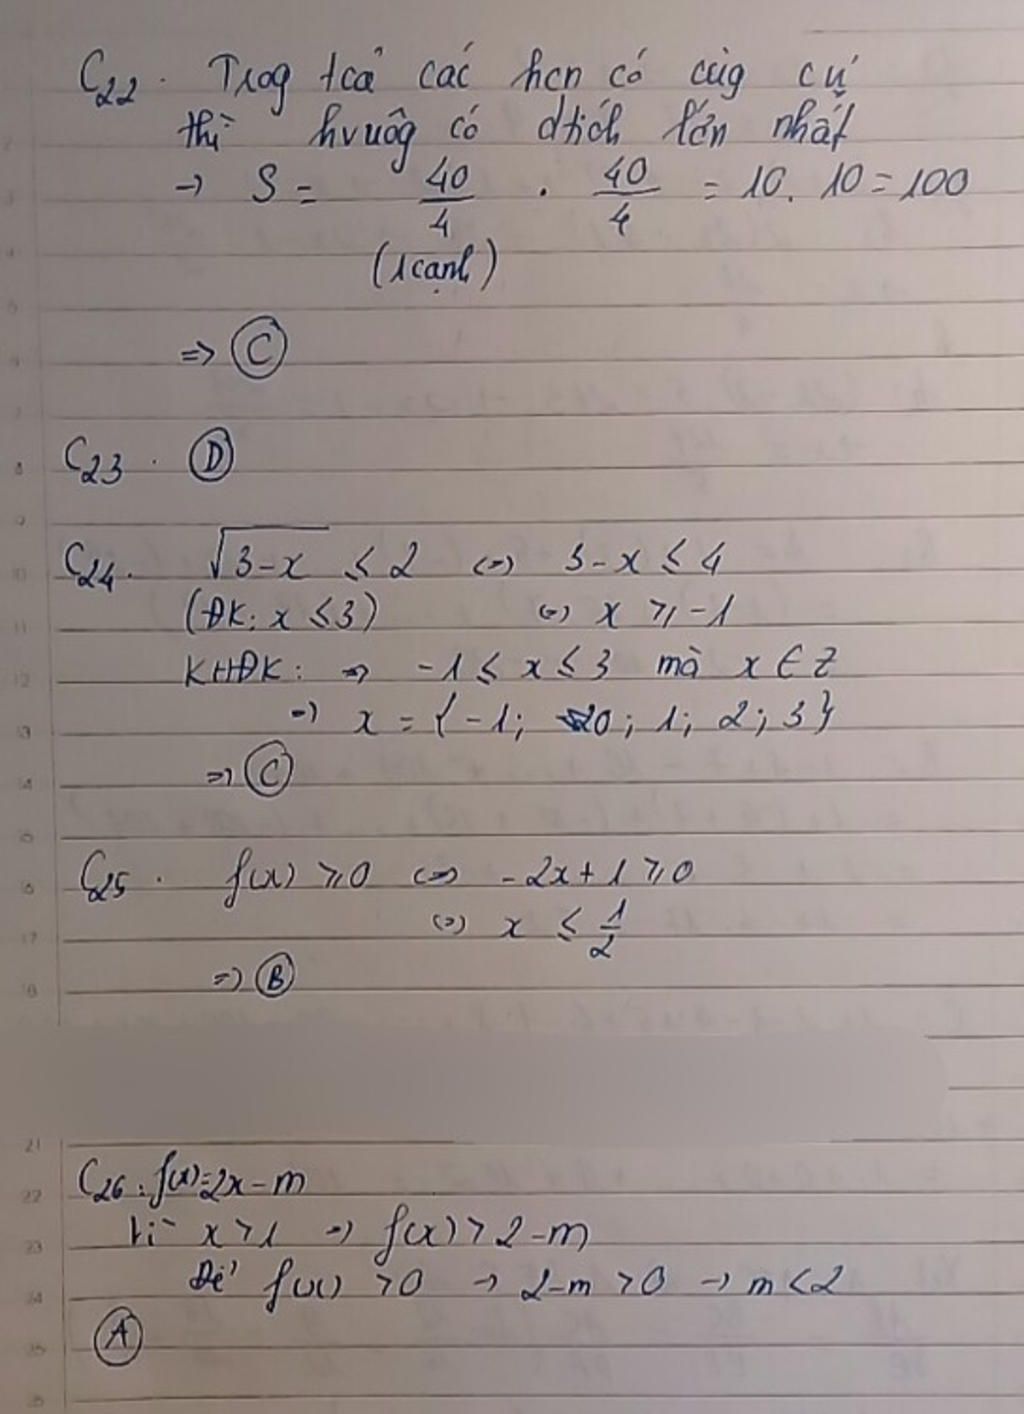 C22. Trog tcả các hcn có cùg cvi
thì hvuôg có dtích lớn nhất
→ S = 40/4 . 40/4 = 10. 10 = 100
(1cạnh)
=> C
C23. D
C24. √3-x ≤ 2 <=> 3-x ≤ 4
(ĐK: x ≤ 3) <=> x ≥ -1
KHĐK: => -1 ≤ x ≤ 3 mà x ∈ Z
=> x = { -1; 0; 1; 2; 3 }
=> C
C25. f(x) ≥ 0 <=> -2x + 1 ≥ 0
<=> x ≤ 1/2
=> B
21
22
C26: f(x) = 2x - m
23
Vì x > 1 => f(x) > 2 - m
24
Để f(x) > 0 → 2-m > 0 → m < 2
25
A